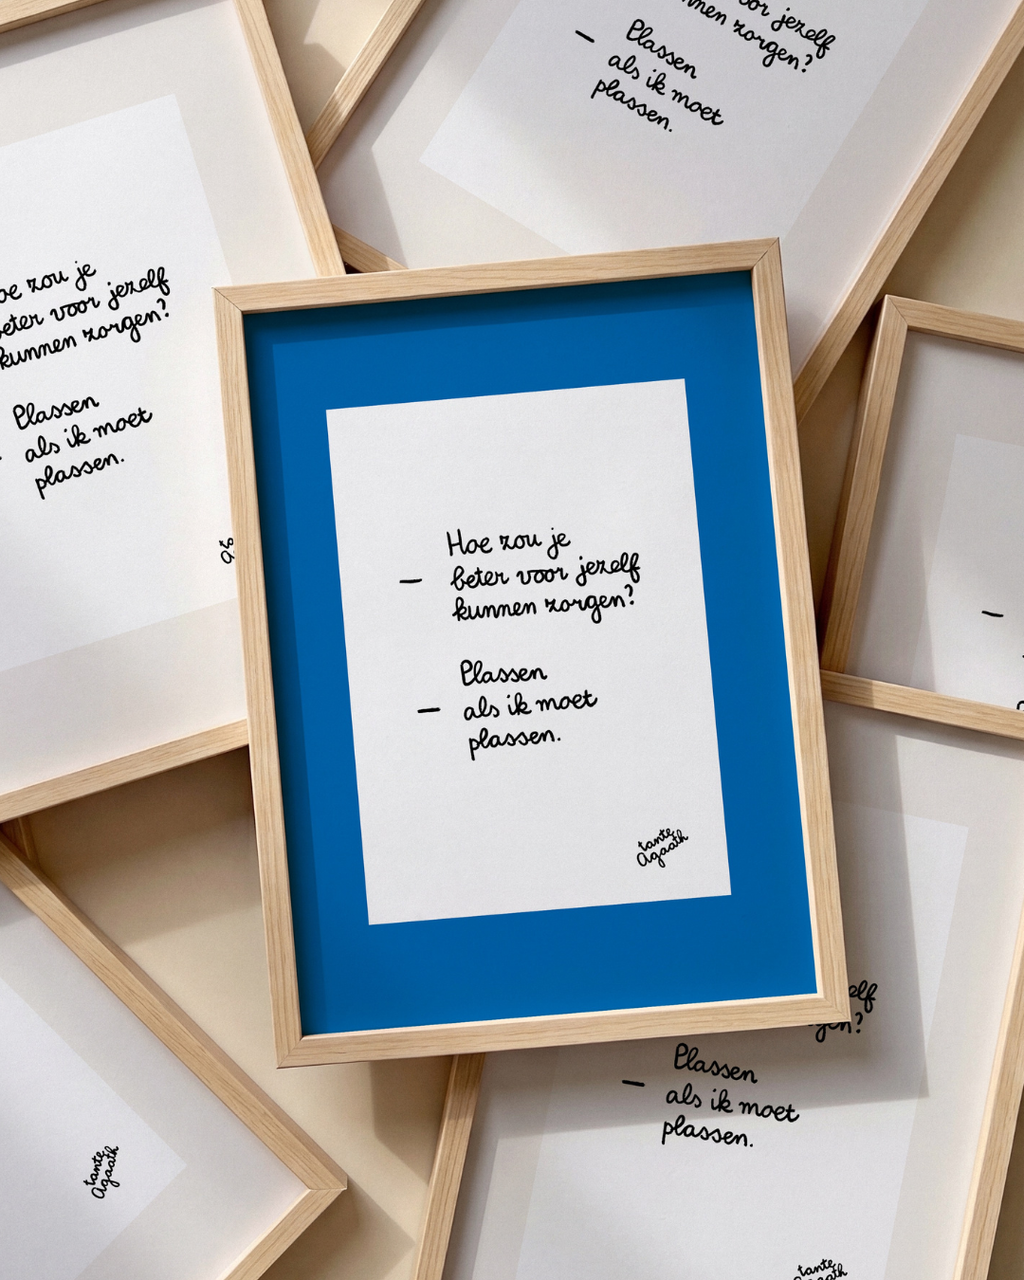 voor jezelf
kunnen zorgen?
– Plassen
als ik moet
plassen.
Hoe zou je
beter voor jezelf
kunnen zorgen?
Plassen
als ik moet
plassen.
Hoe zou je
– beter voor jezelf
kunnen zorgen?
Plassen
– als ik moet
plassen.
tante
Agaath
– Plassen
als ik moet
plassen.
tante
Agaath
tante
Agaath